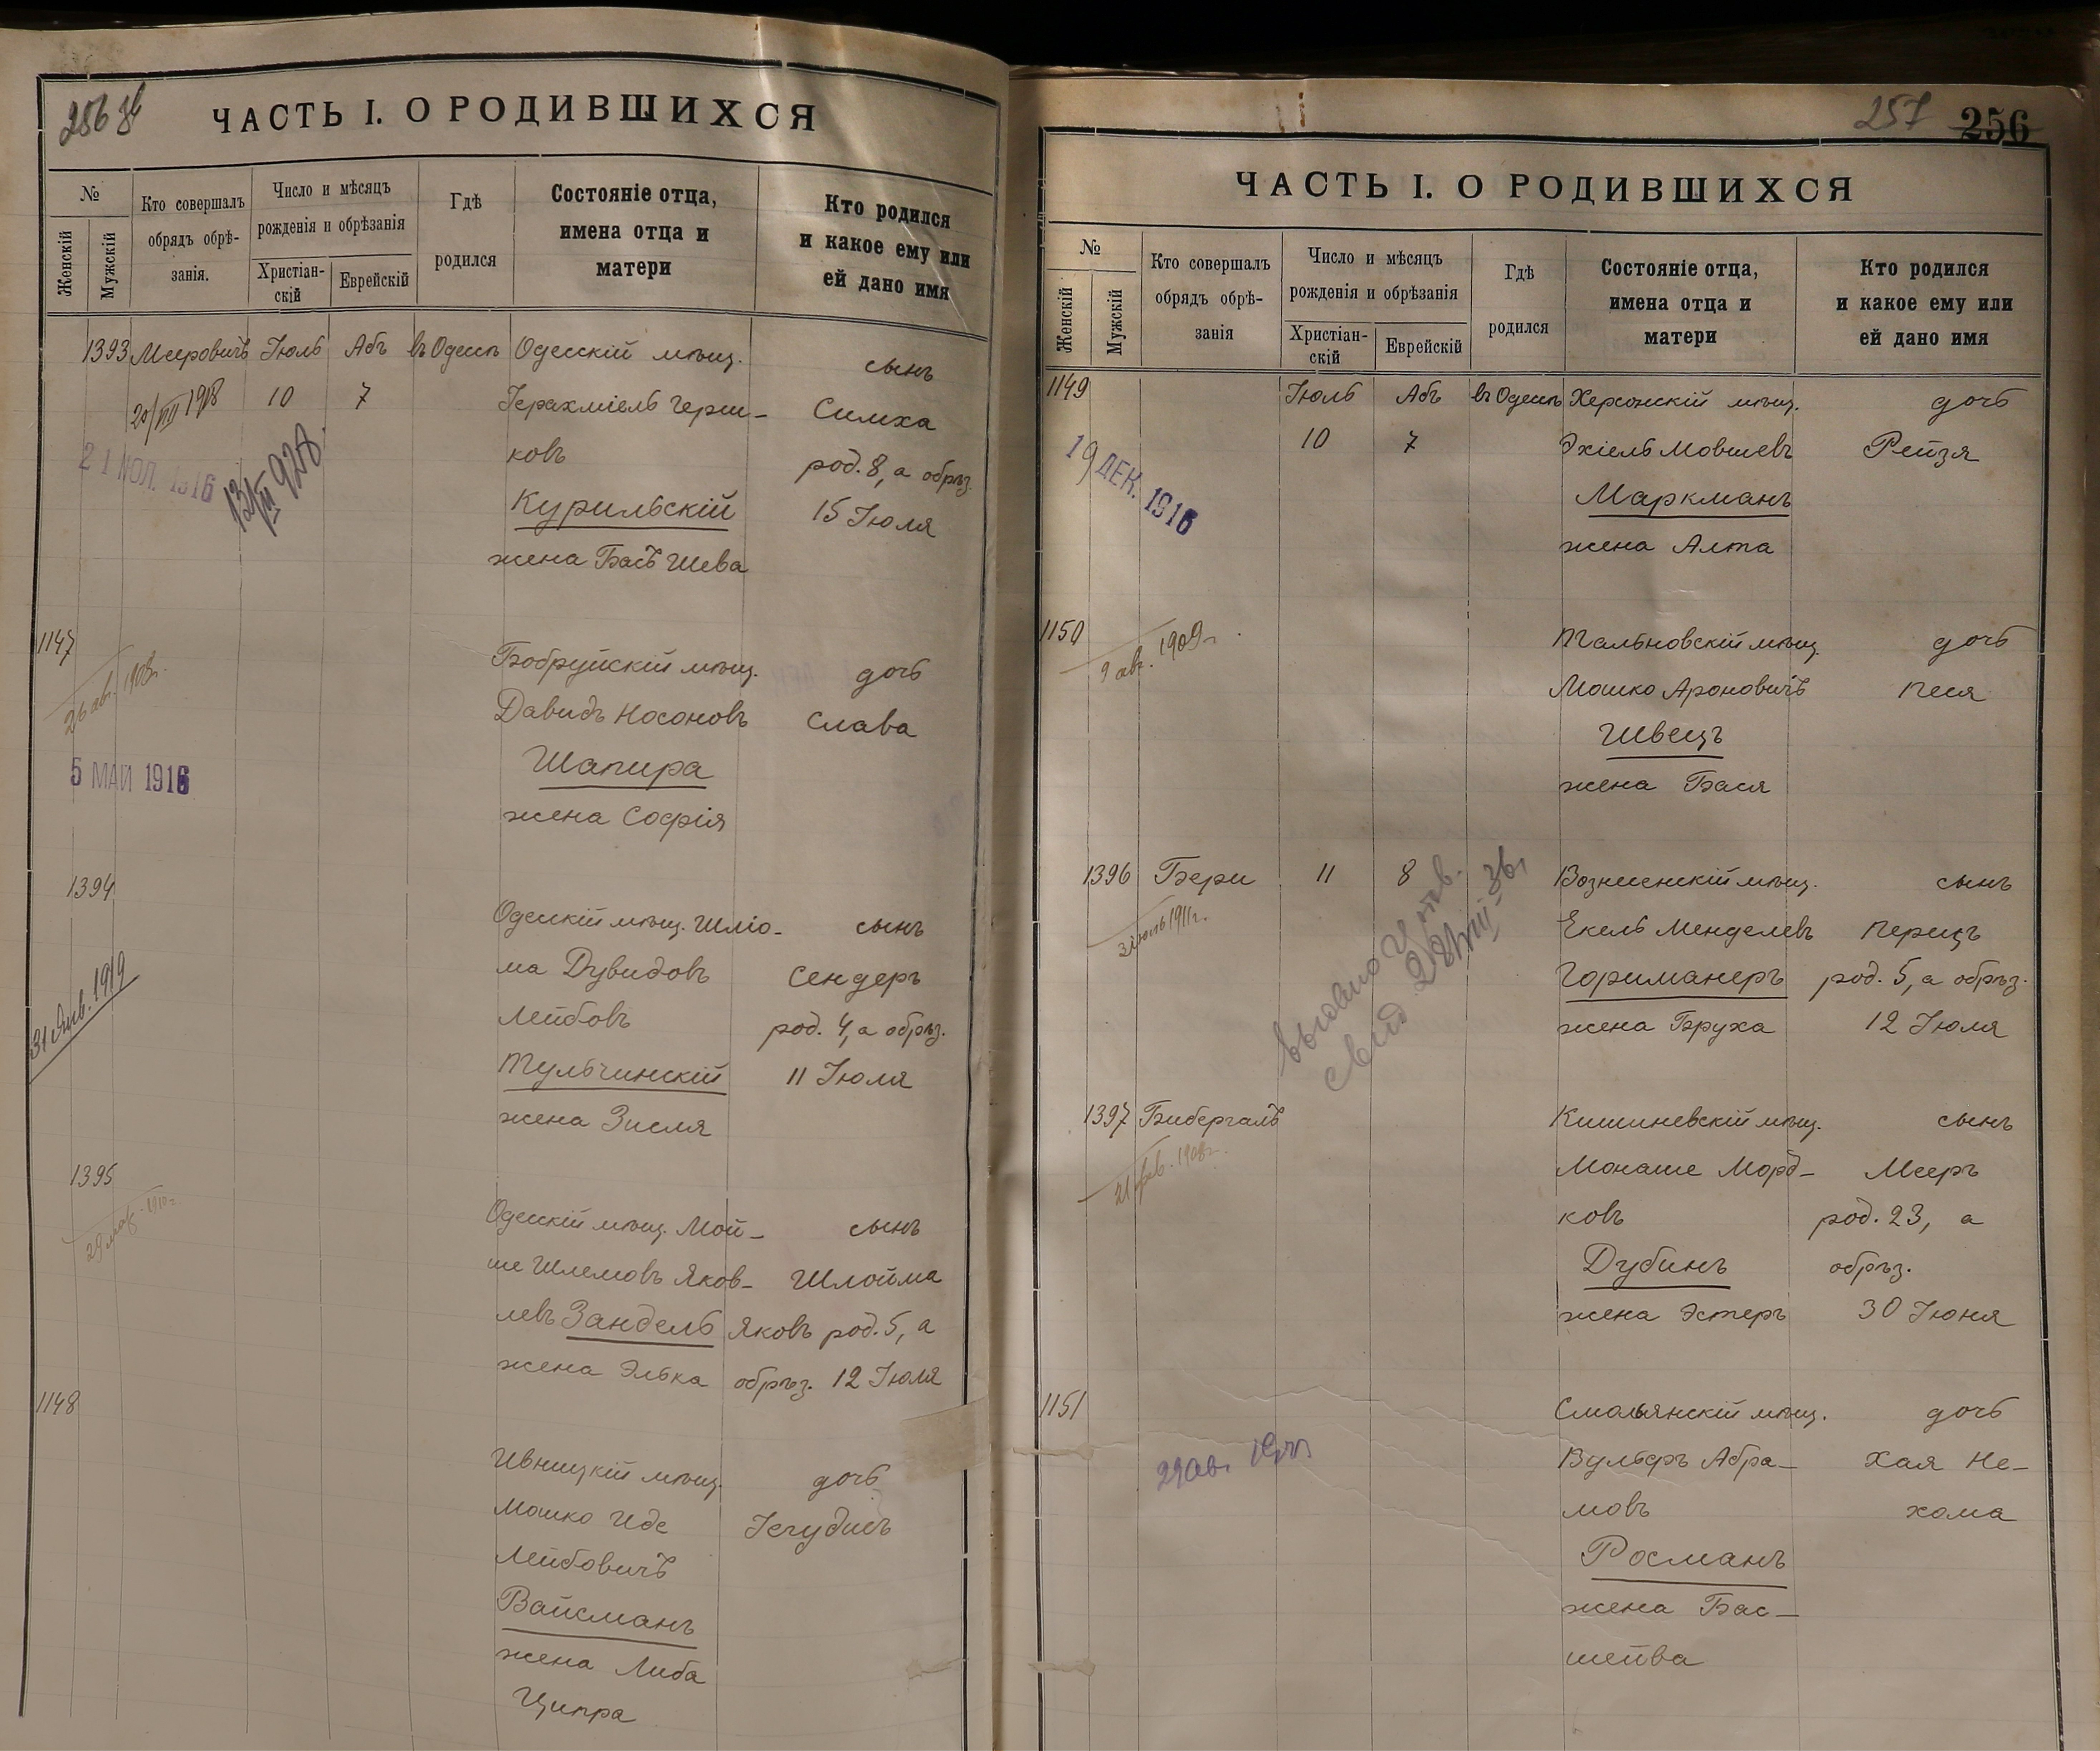 256 об
ЧАСТЬ I. О РОДИВШИХСЯ
№
Женскій
Мужскій
Кто совершалъ
обрядъ обрѣ-
занія.
Число и мѣсяцъ
рожденія и обрѣзанія
Христіан-
скій
Еврейскій
Гдѣ
родился
Состояніе отца,
имена отца и
матери
Кто родился
и какое ему или
ей дано имя
1393 Мееровичъ Іюль Абъ въ Одессѣ Одесскій мѣщ. сынъ
20/VII 1918 10 7 Іерахміель Герш- Симха
ковъ род. 8, а обрѣз.
21 ИЮЛ. 1916
Курильскій 15 Іюля
жена Басъ Шева
1147 Бобруйскій мѣщ. дочь
26 авг. 1908г. Давидъ Носоновъ Слава
5 МАЙ 1916 Шапира
жена Софія
1394
Одесскій мѣщ. Шліо- сынъ
ма Дувидовъ Сендеръ
31 Янв. 1919 Лейбовъ род. 4, а обрѣз.
Тульчинскій 11 Іюля
жена Зисля
1395
Одесскій мѣщ. Мой- сынъ
ше Шлемовъ Яков- Шлойма
левъ Зандель Яковъ род. 5, а
жена Элька обрѣз. 12 Іюля
1148
Ивницкій мѣщ. дочь
Мошко Иде Іегудисъ
Лейбовичъ
Вайсманъ
жена Либа
Ципра
257 256
ЧАСТЬ I. О РОДИВШИХСЯ
№
Женскій
Мужскій
Кто совершалъ
обрядъ обрѣ-
занія
Число и мѣсяцъ
рожденія и обрѣзанія
Христіан-
скій
Еврейскій
Гдѣ
родился
Состояніе отца,
имена отца и
матери
Кто родился
и какое ему или
ей дано имя
1149 Іюль Абъ въ Одессѣ Херсонскій мѣщ. дочь
10 7 Эхіель Мовшевъ Рейзя
19 ДЕК. 1916 Маркманъ
жена Алта
1150 Тальновскій мѣщ. дочь
9 авг. 1909г. Мошко Ароновичъ Песя
Швецъ
жена Бася
1396 Бери 11 8 Вознесенскій мѣщ. сынъ
1911г. Екель Менделевъ Перецъ
Гориманеръ род. 5, а обрѣз.
жена Бруха 12 Іюля
1397 Бибергаль Кишиневскій мѣщ. сынъ
21 фев. 1908г. Монаше Морд- Мееръ
ковъ род. 23, а
Дубинъ обрѣз.
жена Эстеръ 30 Іюня
1151 Смольянскій мѣщ. дочь
29 ав. Вульфъ Абра- Хая Не-
мовъ хама
Росманъ
жена Бас-
шейва